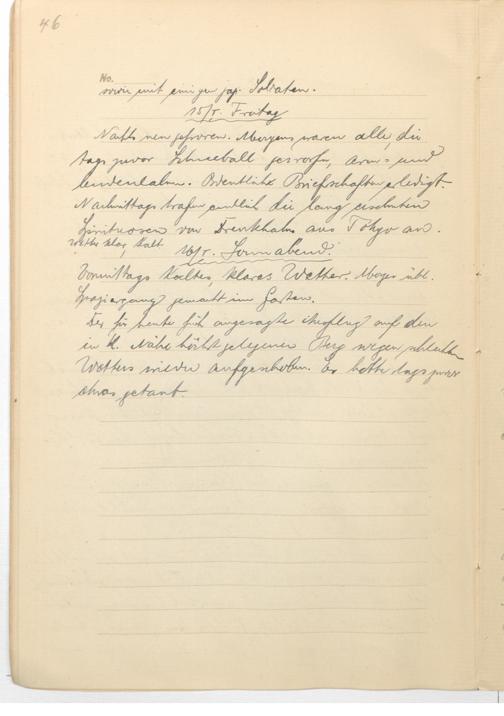 46
No.
sowie mit einigen jap. Soldaten.
15/I. Freitag
Nachts neu gefroren. Morgens waren alle, die
tags zuvor Schneeball geworfen, arm- und
lendenlahm. Ordentlich Briefschaften erledigt.
Nachmittags trafen endlich die lang ersehnten
Spirituosen von Drenkhahn aus Tokyo an.
Wetter klar, kalt
16/I. Sonnabend.
Vormittags kaltes, klares Wetter. Morgs übl.
Spaziergang gemacht im Garten.
Der für heute früh angesagte Ausflug auf den
in d. Nähe höchst gelegenen Berg wegen schlechten
Wetters wieder aufgeschoben. Es hatte tags zuvor
etwas getaut.